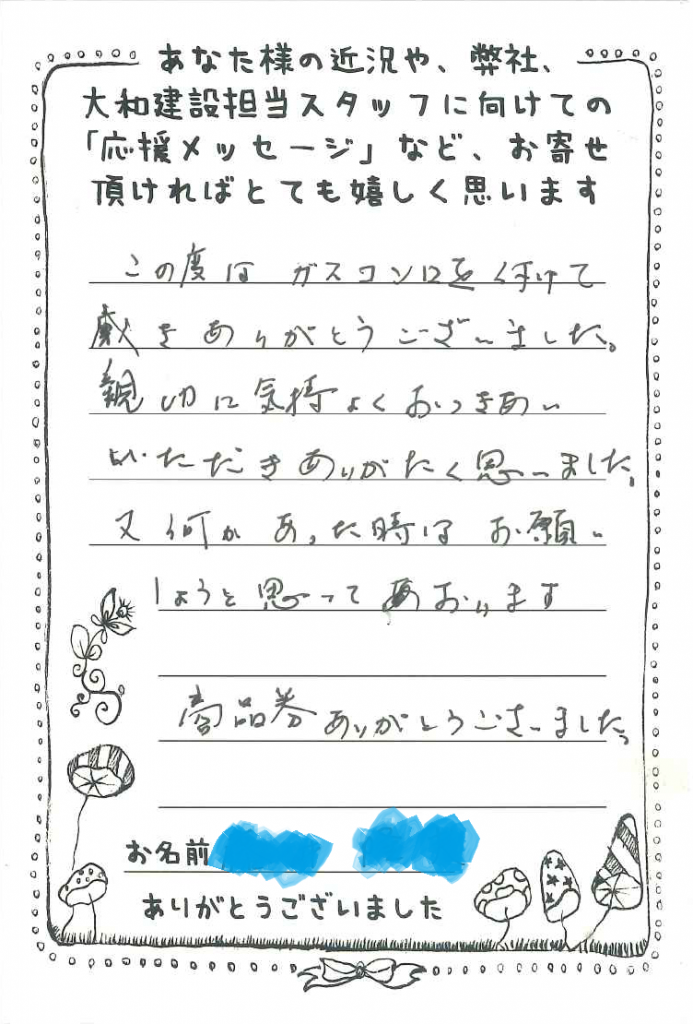 あなた様の近況や、弊社、
大和建設担当スタッフに向けての
「応援メッセージ」など、お寄せ
頂ければとても嬉しく思います
この度は ガスコンロを付けて
戴きありがとうございました。
親切に気持よくおつきあい
いただきありがたく思いました。
又何かあった時は お願い
しようと思って おります
商品券ありがとうございました。
お名前
ありがとうございました